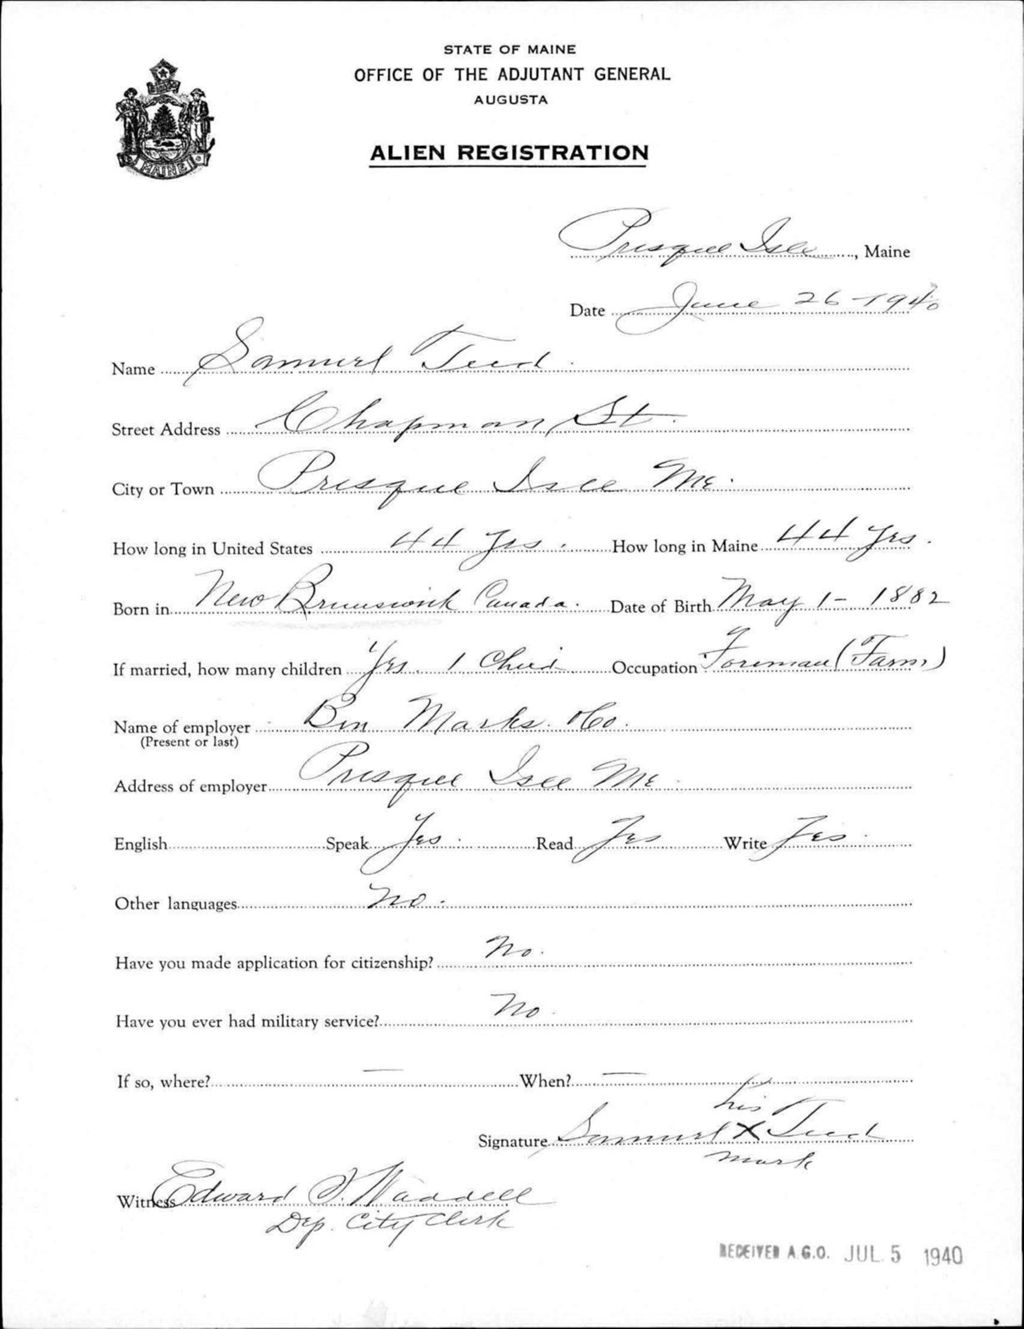 STATE OF MAINE
OFFICE OF THE ADJUTANT GENERAL
AUGUSTA
ALIEN REGISTRATION
MAINE
Presque Isle, Maine
Date June 26-1940
Name Samuel Teed.
Street Address Chapman St.
City or Town Presque Isle Me.
How long in United States 44 Yrs. How long in Maine 44 Yrs.
Born in New Brunswick Canada. Date of Birth May 1- 1882
If married, how many children Yes. 1 Child Occupation Foreman (Farm)
Name of employer Ben Marks Co.
(Present or last)
Address of employer Presque Isle Me.
English Speak Yes. Read Yes Write Yes
Other languages No.
Have you made application for citizenship? No.
Have you ever had military service? No
If so, where? — When? —
his
Signature Samuel X Teed
mark
Witness Edward J. Waddell
Dep. City Clerk
RECEIVED A.G.O. JUL 5 1940